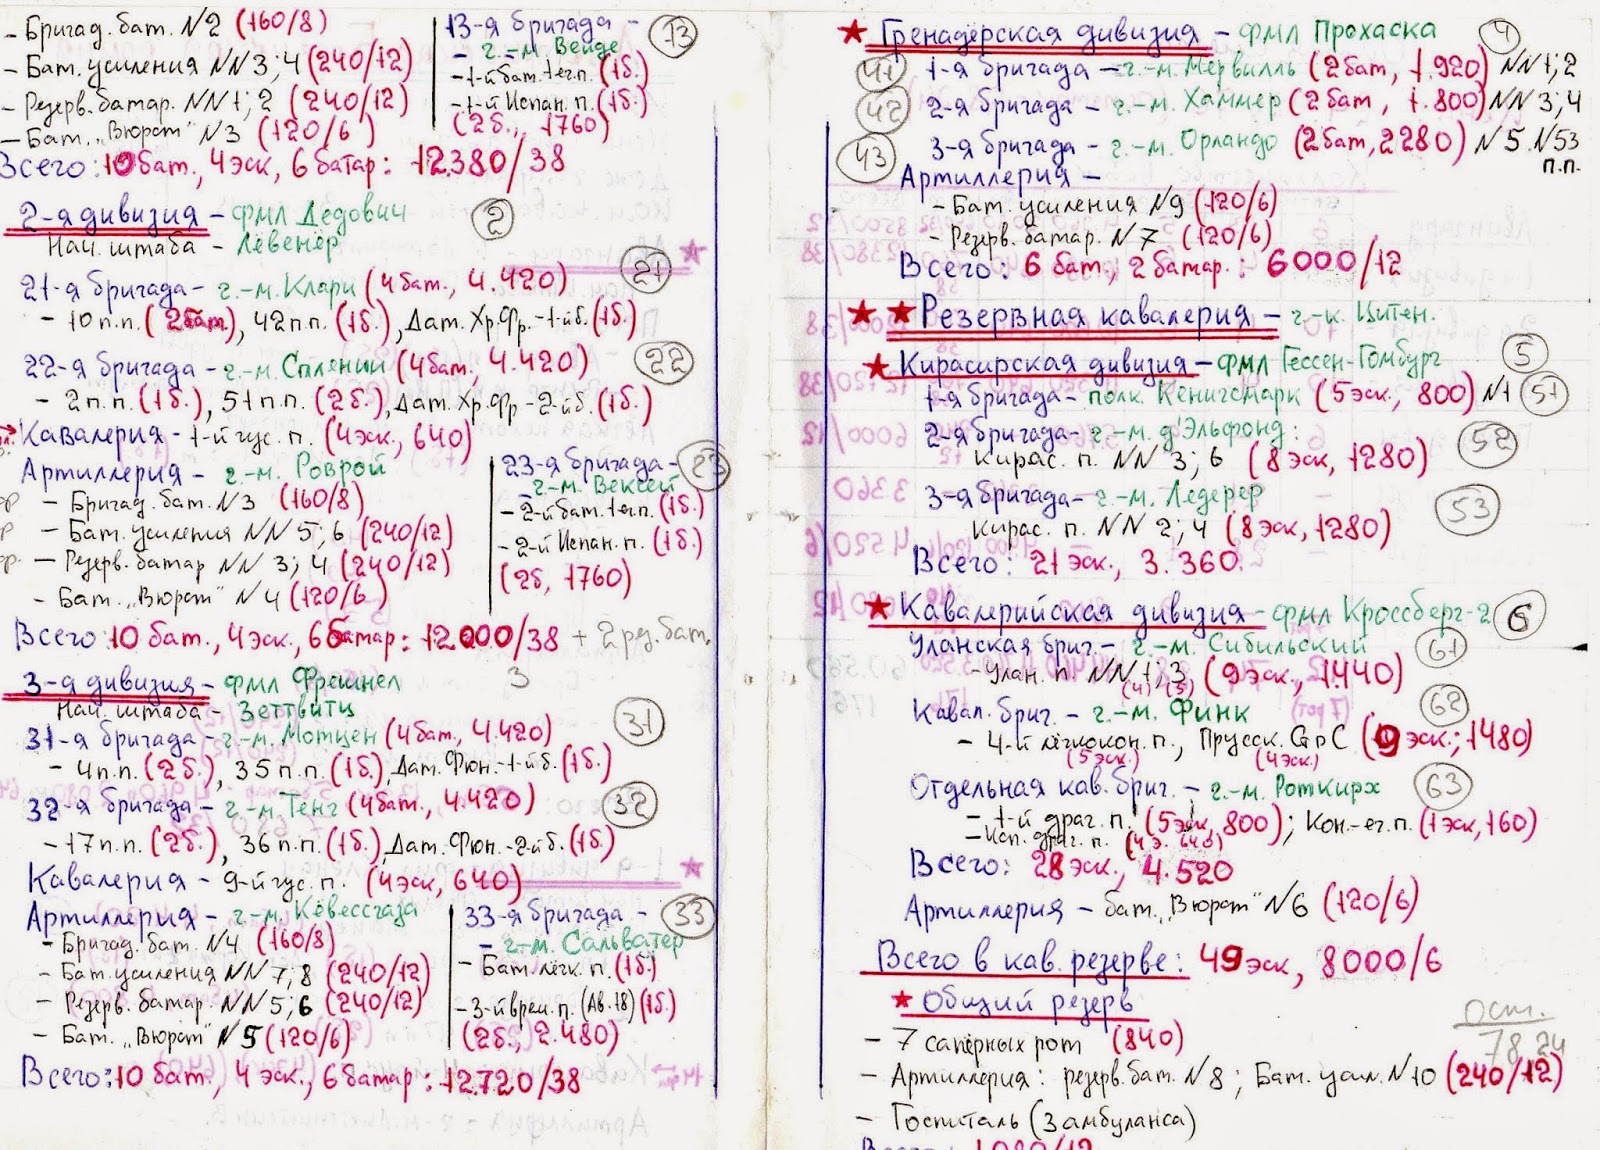 - Бригад. бат. N2 (160/8)
- Бат. усиления NN 3; 4 (240/12)
- Резерв. батар. NN 1; 2 (240/12)
- Бат. „Вюрст" N3 (120/6)
Всего: 10 бат., 4 эск, 6 батар: 12.380/38
13-я бригада - 13
- г.-м. Вейде
- 1-й бат. 1 ег. п. (1б.)
- 1-й Испан. п. (1б.)
(2б., 1760)
2-я дивизия - фмл Дедович 2
Нач. штаба - Лёвенёр
21-я бригада - г.-м. Клари (4 бат., 4.420) 21
- 10 п.п. (2 бат.), 42 п.п. (1б.), Дат. Хр. Фр. - 1-й б. (1б.)
22-я бригада - г.-м. Сплении (4 бат., 4.420) 22
- 2 п.п. (1б.), 51 п.п. (2б.), Дат. Хр. Фр - 2-й б. (1б.)
Кавалерия - 1-й гус. п. (4 эск, 640)
Артиллерия - г.-м. Роврой
- Бригад. бат. N3 (160/8)
- Бат. усиления NN 5; 6 (240/12)
- Резерв. батар NN 3; 4 (240/12)
- Бат. „Вюрст" N4 (120/6)
23-я бригада - 23
- г.-м. Вексей
- 2-й бат. 1 ег. п. (1б.)
- 2-й Испан. п. (1б.)
(2б, 1760)
Всего 10 бат., 4 эск, 6 батар: 12.000/38 + 2 рез. бат.
3-я дивизия - фмл Фрешнел 3
Нач. штаба - Зеттвитц
31-я бригада - г.-м. Мотцен (4 бат, 4.420) 31
- 4 п.п. (2б.), 35 п.п. (1б.), Дат. Фюн. - 1-й б. (1б.)
32-я бригада - г.-м. Тенг (4 бат, 4.420) 32
- 17 п.п. (2б.), 36 п.п. (1б.), Дат. Фюн. - 2-й б. (1б.)
Кавалерия - 9-й гус. п. (4 эск, 640)
Артиллерия - г.-м. Кёвессгаза
- Бригад. бат. N4 (160/8)
- Бат. усиления NN 7; 8 (240/12)
- Резерв. батар. NN 5; 6 (240/12)
- Бат. „Вюрст" N5 (120/6)
33-я бригада - 33
- г.-м. Сальватер
- Бат. лёгк. п. (1б.)
- 3-й врем. п. (Ав. 18) (1б.)
(2б., 2.480)
Всего: 10 бат., 4 эск., 6 батар: 12720/38
Гренадерская дивизия - фмл Прохаска 4
41 1-я бригада - г.-м. Мервилль (2 бат, 1.920) NN 1; 2
42 2-я бригада - г.-м. Хаммер (2 бат, 1.800) NN 3; 4
43 3-я бригада - г.-м. Орландо (2 бат, 2280) N 5. N53 п.п.
Артиллерия -
- Бат. усиления N9 (120/6)
- Резерв. батар. N7 (120/6)
Всего: 6 бат., 2 батар.: 6000/12
Резервная кавалерия - г.-к. Цитен.
Кирасирская дивизия - фмл Гессен-Гомбург 5
1-я бригада - полк. Кенигсмарк (5 эск., 800) N1 51
2-я бригада - г.-м. д'Эльфонд: 52
Кирас. п. NN 3; 6 (8 эск, 1280)
3-я бригада - г.-м. Ледерер 53
Кирас. п. NN 2; 4 (8 эск, 1280)
Всего: 21 эск., 3.360.
Кавалерийская дивизия - фмл Кроссберг-2 6
Уланская бриг. - г.-м. Сибильский 61
- Улан. п. NN 1; 3 (9 эск., 1.440)
(4) (5)
Кавал. бриг. - г.-м. Финк 62
- 4-й лёгкокон. п., Прусск. GdC (9 эск.; 1480)
(5 эск.) (4 эск.)
Отдельная кав. бриг. - г.-м. Роткирх 63
- 1-й драг. п. (5 эск, 800); Кон.-ег. п. (1 эск, 160)
- Исп. драг. п. (4 э. 640)
Всего: 28 эск., 4.520
Артиллерия - бат. „Вюрст" N6 (120/6)
Всего в кав. резерве: 49 эск, 8000/6
Общий резерв
- 7 сапёрных рот (840)
ост.
78 24
- Артиллерия: резерв. бат. N8; Бат. усил. N10 (240/12)
- Госпиталь (3 амбуланса)